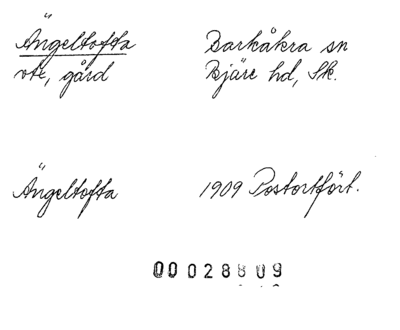 Ängeltofta Barkåkra sn
vte, gård Bjäre hd, Sk.
Ängeltofta 1909 Postortfört.
00028809